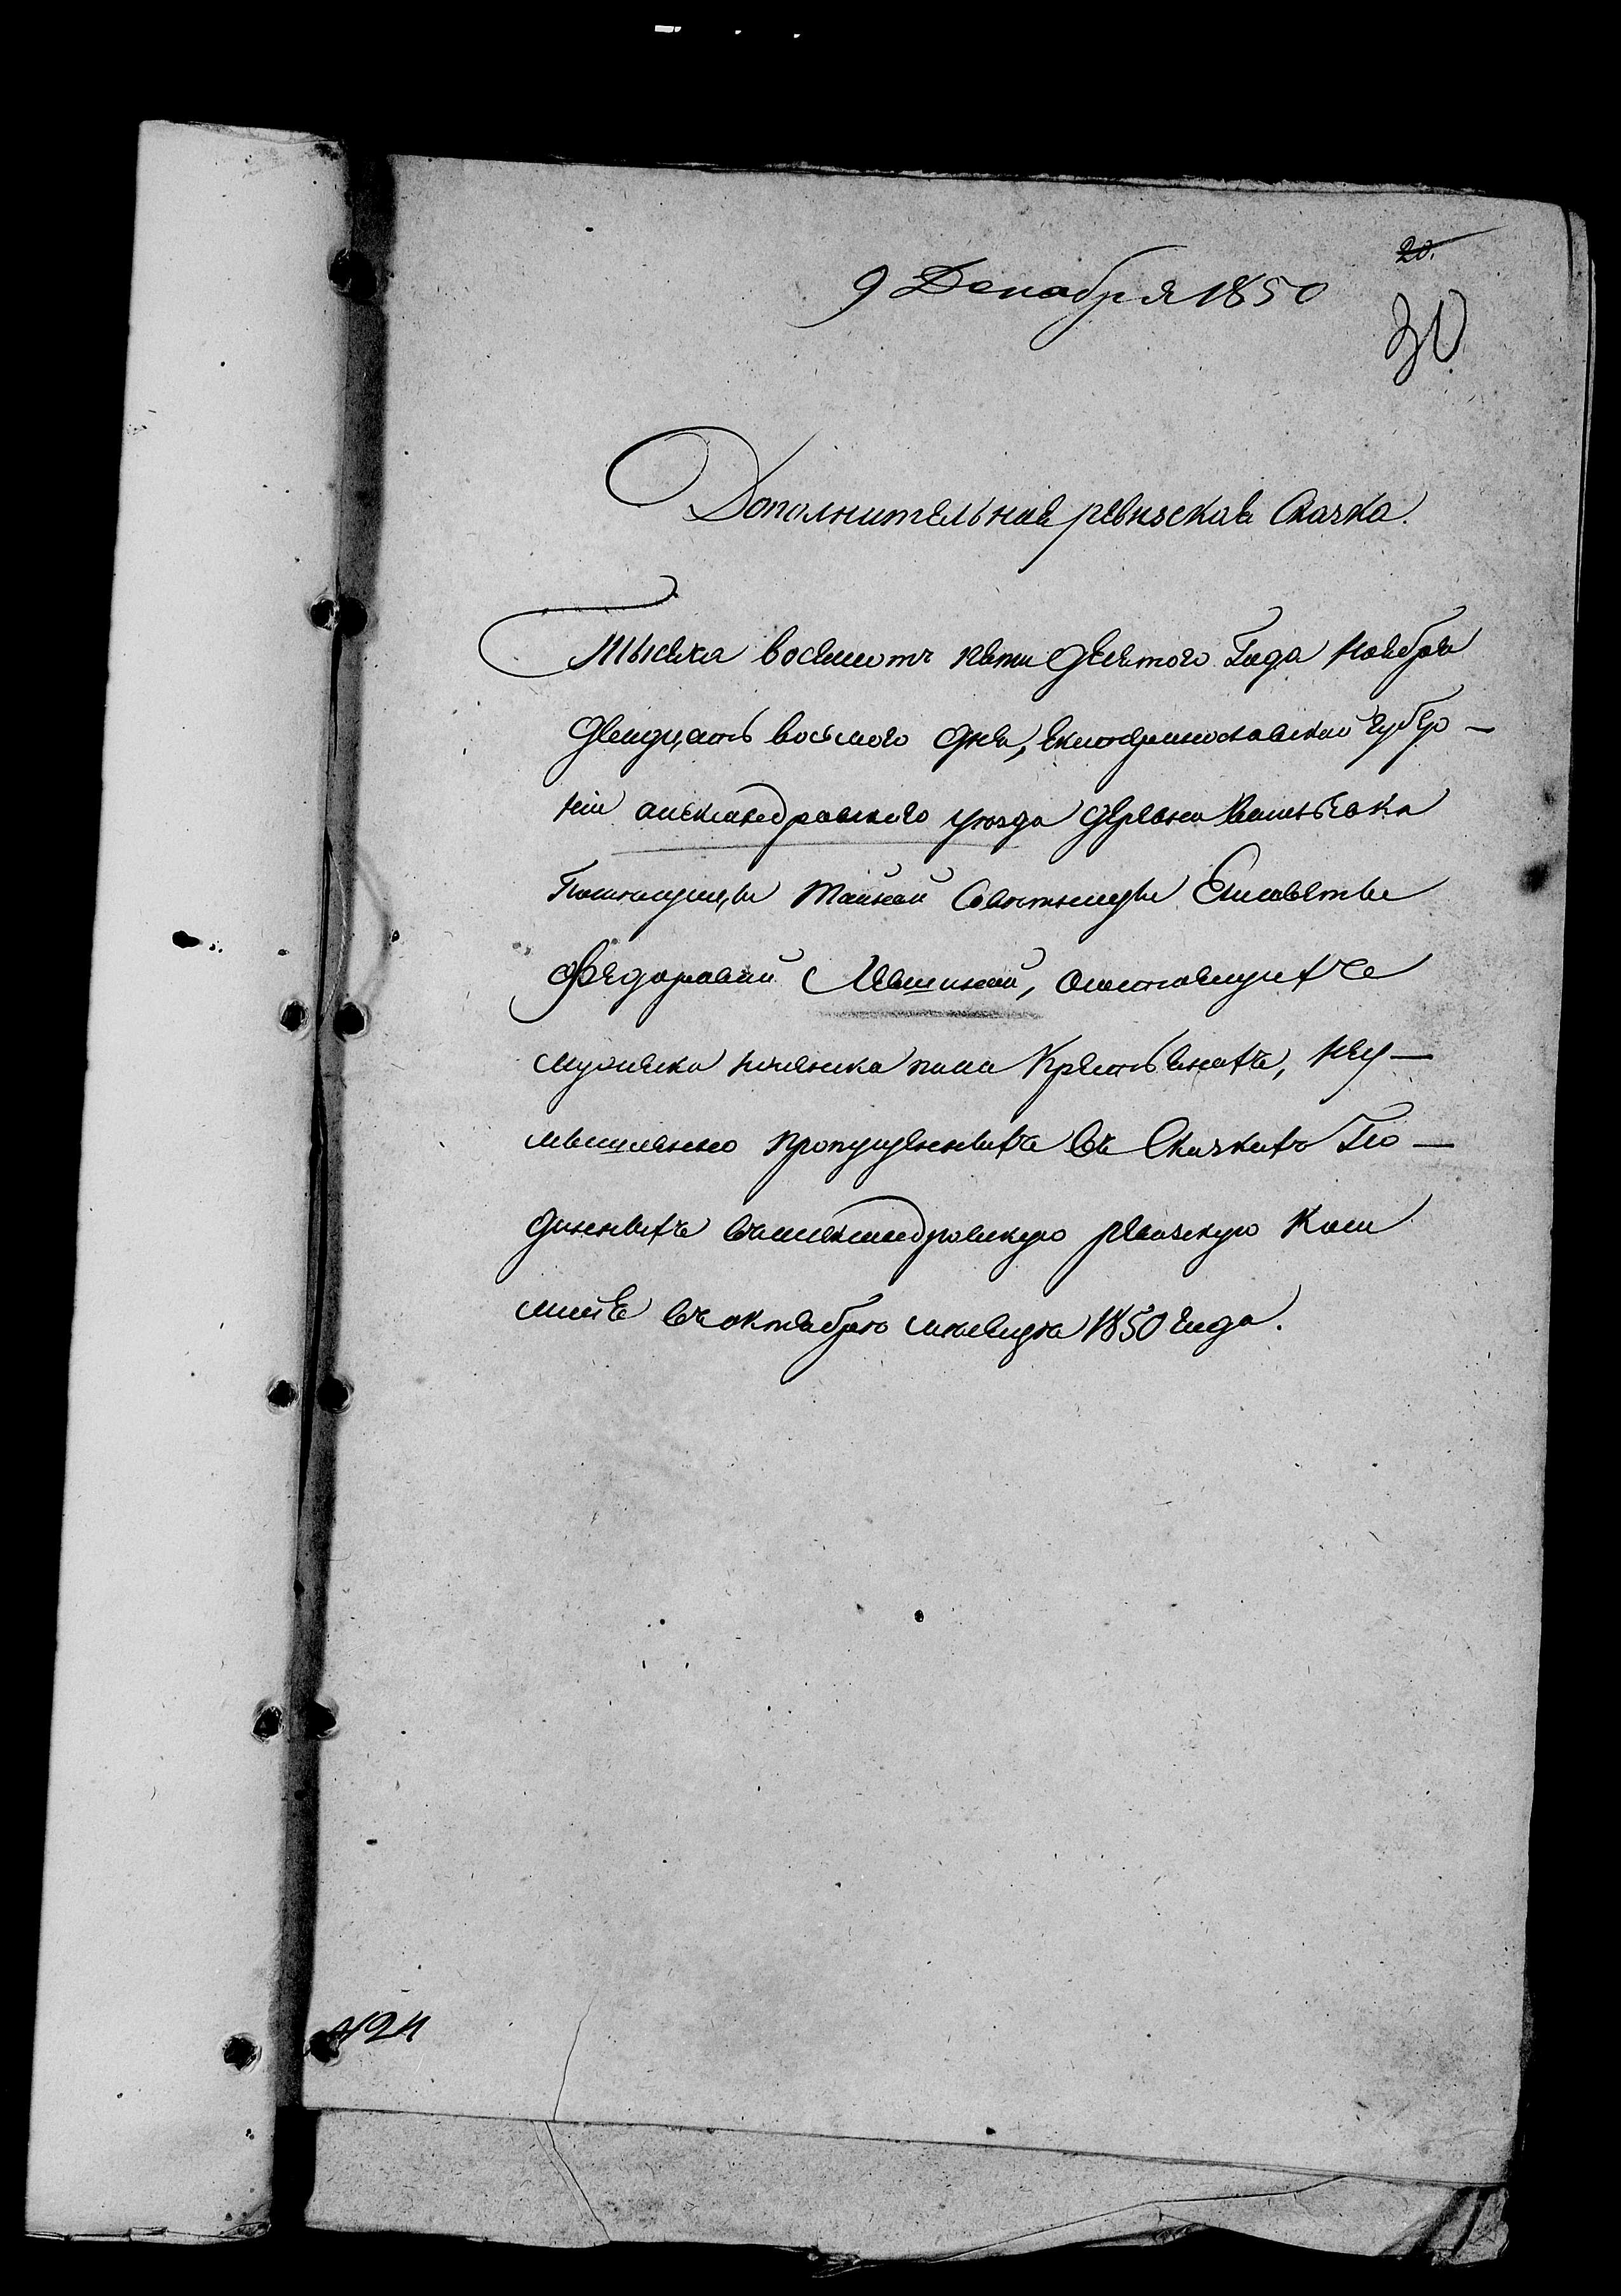 20.
9 Декабря 1850
30
Дополнительная ревизская Сказка.
Тысяча восемсотъ пятидесятого Года Ноября
двадцать восьмого дня, Екатеринославской губер-
ніи александровского уезда деревни Васильевки
Помещицы Тайной Советницы Елисаветы
Федоровой, состоящихъ
мужеска и женска пола Крестьянахъ, неу-
мышленно пропущенныхъ въ Сказкахъ По-
данныхъ въ александровскую ревизскую Ком
мисію въ октябре месяце 1850 года.
№24